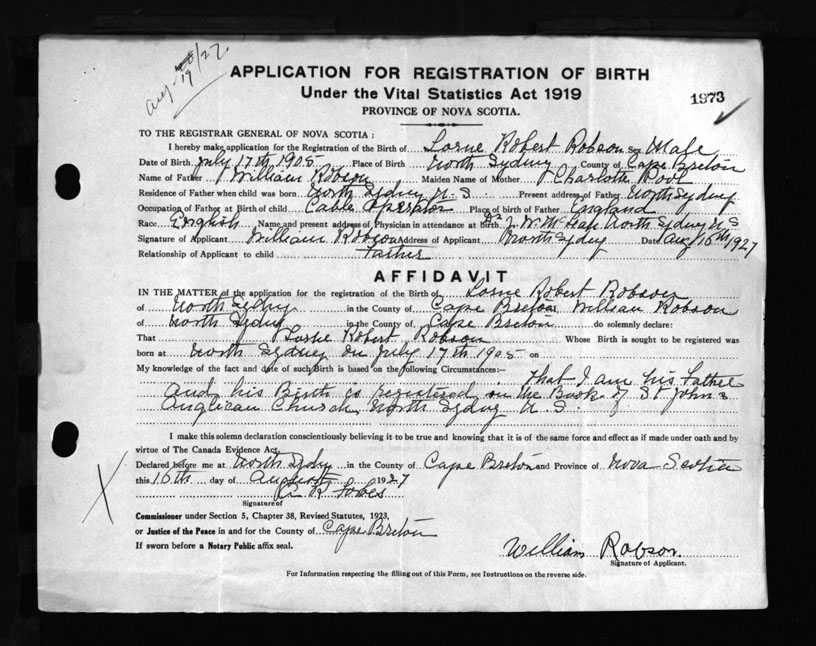 Aug 19/27
APPLICATION FOR REGISTRATION OF BIRTH
Under the Vital Statistics Act 1919
1973
PROVINCE OF NOVA SCOTIA.
TO THE REGISTRAR GENERAL OF NOVA SCOTIA :
I hereby make application for the Registration of the Birth of Lorne Robert Robson Sex Male
Date of Birth July 17th 1905 Place of Birth North Sydney County of Cape Breton
Name of Father William Robson Maiden Name of Mother Charlotte
Residence of Father when child was born North Sydney N. S. Present address of Father North Sydney
Occupation of Father at Birth of child Cable Operator Place of birth of Father England
Race English Name and present address of Physician in attendance at Birth Dr J. W. North Sydney N S
Signature of Applicant William Robson Address of Applicant North Sydney Date Aug 16th 1927
Relationship of Applicant to child Father
AFFIDAVIT
IN THE MATTER of the application for the registration of the Birth of Lorne Robert Robson
of North Sydney in the County of Cape Breton, William Robson
of North Sydney in the County of Cape Breton do solemnly declare:
That Lorne Robert Robson Whose Birth is sought to be registered was
born at North Sydney on July 17th 1905 on
My knowledge of the fact and date of such Birth is based on the following Circumstances:— That I am his Father
And his Birth is registered on the Book of St John's
Anglican Church, North Sydney N. S.
I make this solemn declaration conscientiously believing it to be true and knowing that it is of the same force and effect as if made under oath and by
virtue of The Canada Evidence Act.
Declared before me at North Sydney in the County of Cape Breton and Province of Nova Scotia
this 16th day of August 1927
Signature of
Commissioner under Section 5, Chapter 38, Revised Statutes, 1923,
or Justice of the Peace in and for the County of Cape Breton
If sworn before a Notary Public affix seal.
William Robson
Signature of Applicant.
For Information respecting the filling out of this Form, see Instructions on the reverse side.